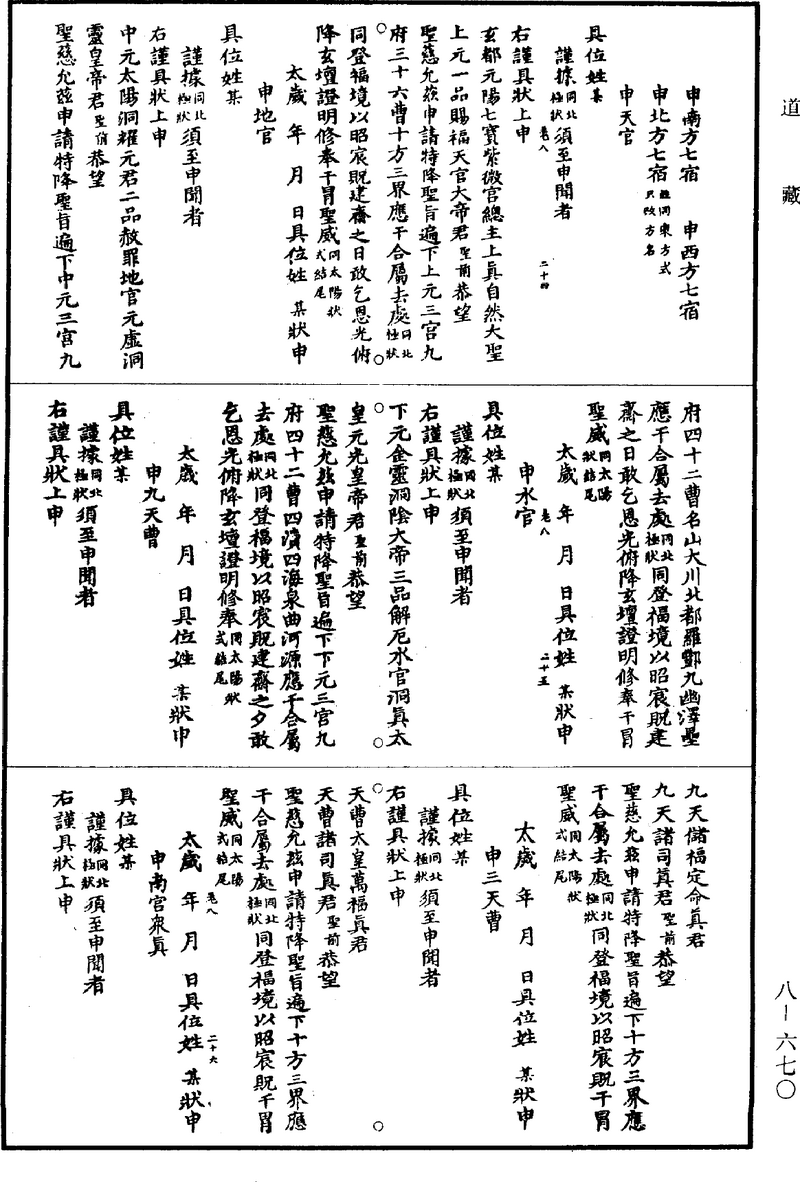 道藏
申南方七宿　申西方七宿
申北方七宿並同東方式只改方名
申天官
具位姓某
謹據同北極狀須至申聞者
卷八　二十四
右謹具狀上申
玄都元陽七寶紫微宮總主上眞自然大聖
上元一品賜福天官大帝君聖前恭望
聖慈允茲申請特降聖旨遍下上元三宮九
府三十六曹十方三界應干合屬去處同北極狀
同登福境以昭宸貺建齋之日敢乞恩光俯
降玄壇證明修奉干冒聖威同太陽狀式結尾
太歲　年　月　日具位姓　某狀申
申地官
具位姓某
謹據同北極狀須至申聞者
右謹具狀上申
中元太陽洞耀元君二品赦罪地官元虛洞
靈皇帝君聖前恭望
聖慈允茲申請特降聖旨遍下中元三宮九
府四十二曹名山大川北都羅酆九幽澤壘
應干合屬去處同北極狀同登福境以昭宸貺建
齋之日敢乞恩光俯降玄壇證明修奉干冒
聖威同太陽狀結尾
太歲　年　月　日具位姓　某狀申
卷八　二十五
申水官
具位姓某
謹據同北極狀須至申聞者
右謹具狀上申
下元金靈洞陰大帝三品解厄水官洞眞太
皇元光皇帝君聖前恭望
聖慈允茲申請特降聖旨遍下下元三宮九
府四十二曹四瀆四海泉曲河源應干合屬
去處同北極狀同登福境以昭宸貺建齋之夕敢
乞恩光俯降玄壇證明修奉同太陽狀式結尾
太歲　年　月　日具位姓　某狀申
申九天曹
具位姓某
謹據同北極狀須至申聞者
右謹具狀上申
九天儲福定命眞君
九天諸司眞君聖前恭望
聖慈允茲申請特降聖旨遍下十方三界應
干合屬去處同北極狀同登福境以昭宸貺干冒
聖威同太陽狀式結尾
太歲　年　月　日具位姓　某狀申
申三天曹
具位姓某
謹據同北極狀須至申聞者
右謹具狀上申
天曹太皇萬福眞君
天曹諸司眞君聖前恭望
聖慈允茲申請特降聖旨遍下十方三界應
干合屬去處同北極狀同登福境以昭宸貺干冒
聖威同太陽式結尾
卷八　二十六
太歲　年　月　日具位姓　某狀申
申南宮衆眞
具位姓某
謹據同北極狀須至申聞者
右謹具狀上申
八－六七〇